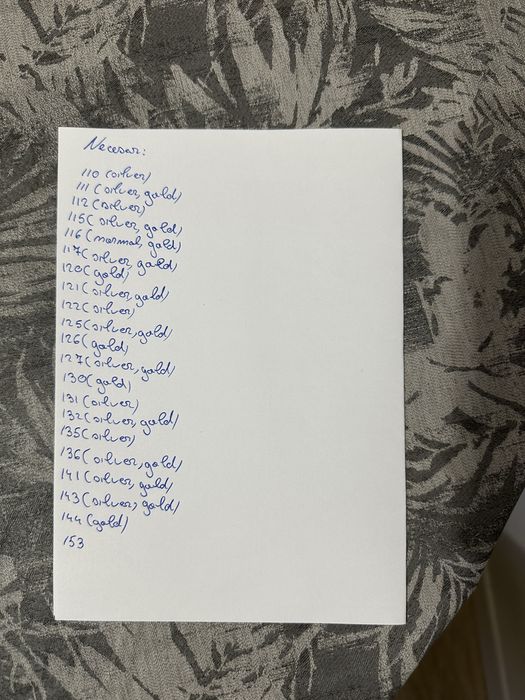 Necesar:
110 (silver)
111 (silver, gold)
112 (silver)
115 (silver, gold)
116 (normal, gold)
117 (silver, gold)
120 (gold)
121 (silver, gold)
122 (silver)
125 (silver, gold)
126 (gold)
127 (silver, gold)
130 (gold)
131 (silver)
132 (silver, gold)
135 (silver)
136 (silver, gold)
141 (silver, gold)
143 (silver, gold)
144 (gold)
153